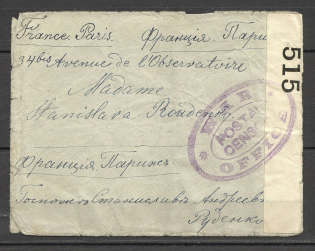 France Paris. Франція. Пари
34 bis Avenue de l'Observatoire
Madame
Stanislava Roudenko
Франція Парижъ
Госпожѣ Станиславѣ Андреевн
Руденко
POSTAL
CENSOR
OFFICE
515